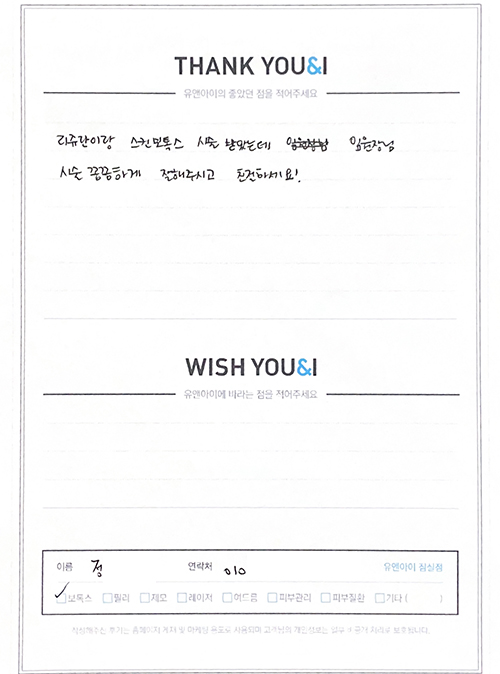 THANK YOU&I
유앤아이의 좋았던 점을 적어주세요
리쥬란이랑 스킨보톡스 시술 받았는데 임원장님
시술 꼼꼼하게 잘해주시고 친절하세요!
WISH YOU&I
유앤아이에 바라는 점을 적어주세요
이름 정 연락처 010 유앤아이 잠실점
보톡스 필러 제모 레이저 여드름 피부관리 피부질환 기타 ( )
작성해주신 후기는 홈페이지 게재 및 마케팅 용도로 사용되며 고객님의 개인정보는 일부 비공개 처리로 보호됩니다.